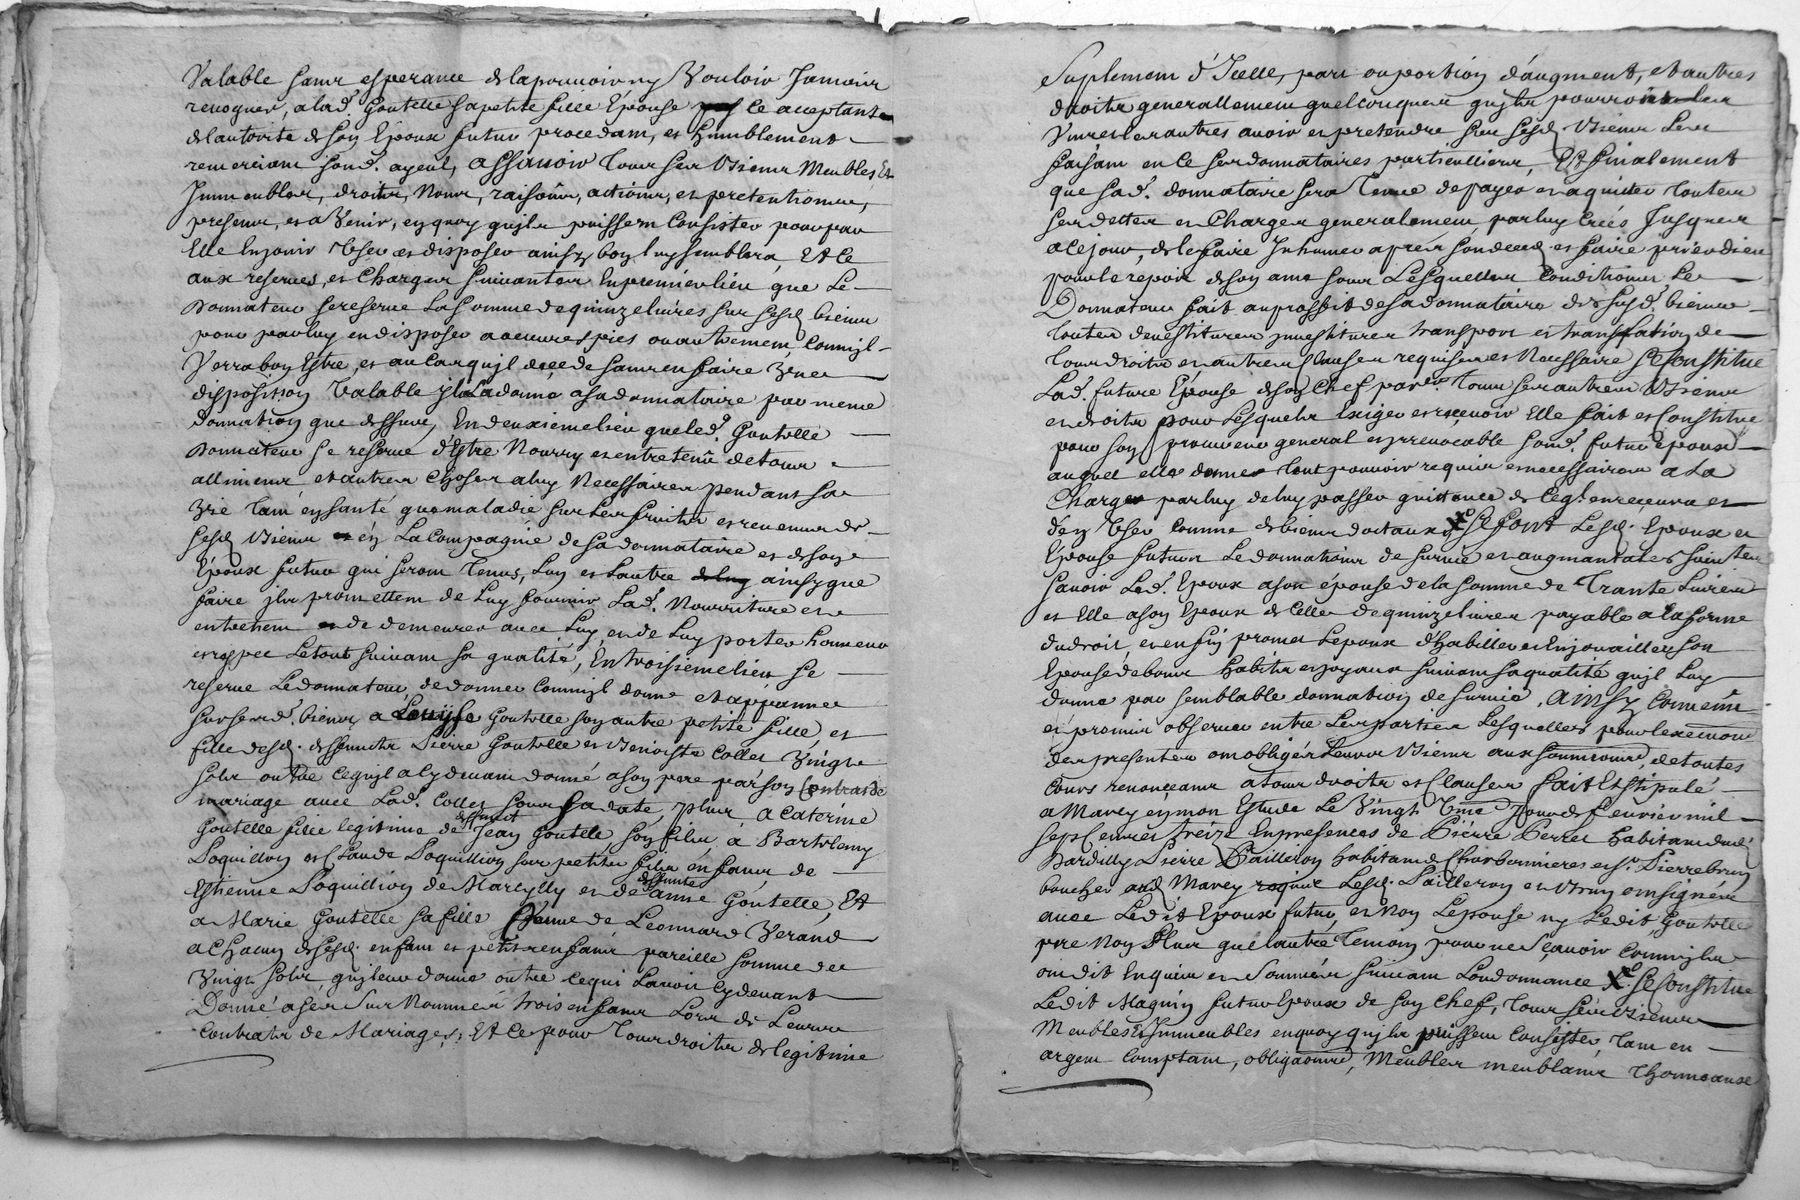 Valable sans esperance de la pouvoir ny Vouloir Jamais
revoquer, a lad. Goutelle sa petite fille Epouse ce acceptante
de lautorite de son Epoux futur procedant, et humblement
remerciant sond. ayeul, assavoir tous ses Biens Meubles Et
Immeubles, droits, Noms, raisons, actions, et pretentions,
presens, et a Venir, en quoy quils puissent Consister pour par
Elle En jouir User et disposer ainsy bon luy semblera, Et Ce
aux reserves, et Charges suivantes En premier lieu que Le
Donnateur se reserve La somme de quinze livres sur sesd. biens
pour par luy en disposer a oeuvres pies ou autrement, Comm'jl
Verra bon Estre, et au Cas qu'jl decede sans en faire Une
disposition Valable jl La donne a sa donnataire par meme
donnation que dessus, En deuxieme lieu que led. Goutelle
Donnateur se reserve d'Estre Nourry et entretenû de tous
allimens et autres Choses a luy Necessaires pendant sa
Vie Tant en santé que maladie sur les fruits et revenus de
sesd. Biens en La Compagnie de sa donnataire et de son
Epoux futur qui seront Tenus, Lun et Lautre ainsy que
faire jls promettent de Luy fournir Lad. Nourriture et
entretient de demeurer avec Luy, et de Luy porter honneur
et respec Le tout suivant sa qualité, En troissieme lieu se
reserve Le donnateur, de donner Comm'jl donne et appanne
sur sesd. biens a Louyse Goutelle son autre petite fille, et
fille desd. deffuncts Pierre Goutelle et Benoiste Collet Vingt
sols outre ce qu'jl a Cydevant donné a son pere par son Contrat de
mariage avec Lad. Collet sous sa date, plus a Caterine
Goutelle fille legitime de deffunct Jean Goutelle son filz, a Bartelemy
Loquillion et Claude Loquillion ses petits filz enfans de
Estienne Loquillion de Marcylly et de deffunte anne Goutelle, Et
a Marie Goutelle sa fille femme de Leonnard Verand
a Chacun desd. enfans et petits enfans pareille somme de
Vingt sols, qu'jl leur donne outre ce qui Lavoit Cydevant
Donné a ses Sus Nommés trois enfans Lors de Leurs
Contrats de Mariages; Et Ce pour Tous droits de legitime
Suplement d'Icelle, part ou portion d'augment, et autres
droits generallement quelconques qujls pourroient les
Uns et les autres avoir et pretendre sur sesd. Biens Les
faisant en Ce ses donnataires particulliers, Et finalement
que sad. donnataire sera Tenue de payer et aquiter toutes
ses dettes et Charges generalement par luy Créés Jusques
a Ce jour, de le faire Inhumer apres son deced et faire prier dieu
pour le repos de son ame sous Lesquelles Conditions Le
Donnateur fait au proffit de sa donnataire de susd. biens
toutes devestitures jnvestitures transport et translation de
tous droits et autres Clauses requises et Necessaire Se Constitue
Lad. future Epouse de son Chef tous ses autres Biens
et droits pour Lesquels Exiger et recevoir Elle fait et Constitue
pour son procureur general et jrrevocable sond. futur epoux
auquel elle donne tout pouvoir requis et necessaire a La
Charge par luy de luy passer quittance de Ce qu'jl en recevra et
d'en User Comme de biens dotaux X Se font Lesd. Epoux et
Epouse futurs Le donnations de survie et augmantales suivantes
savoir Led. Epoux a son épouse de la somme de Trante Livres
et Elle a son Epoux de Celle de quinze livres payable a la forme
du droit, et en fin promet Lepoux d'habiller et Enjoualler son
Epouse de bons habits et joyaux suivant sa qualité qu'jl Luy
donne par semblable donnation de survie, ainsy Convenû
et promis observer entre Les parties Lesquelles pour Lexecution
des presentes ont obligés Leurs Biens aux soumissions, de toutes
Cours renonceant a tous droits et Clauses fait et stipulé
a Marcy en mon Estude Le Vingt Jour de fevrier mil
sept Cents treize En presences de Pierre Perret habitant dud.
Dardilly Pierre Pailleron habitant de Charbonnieres et Sr. Pierre brun
boucher aud. Marcy requis Lesd. Pailleron et Brun ont signés
avec Ledit Epoux futur, et Non Lepouse ny Ledit Goutelle
pere Non Plus que lautre Temoin pour ne sçavoir Comm'jls
ont dit Enquis et Sommés suivant Lordonnance X Se Constitue
Ledit Magnin futur Epoux de son Chef, Tous ses Biens
Meubles et Immeubles en quoy qujls puissent Consister, Tant en
argent Comptant, obligations, Meubles meublans Thonneaux